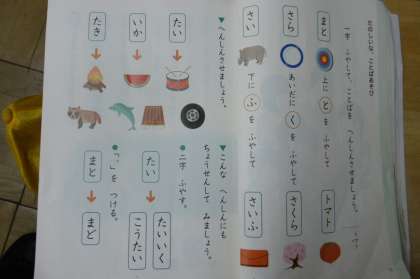 たのしいな、ことばあそび
一字 ふやして、ことばを へんしんさせましょう。
まと
上に とを ふやして
トマト
さら
あいだに くを ふやして
さくら
さい
下に ふを ふやして
さいふ
▼へんしんさせましょう。
たい
いか
たき
▼こんな へんしんにも
ちょうせんして みましょう。
●二字 ふやす。
たい
たいいく
こうたい
●「゛」を つける。
まと
まど